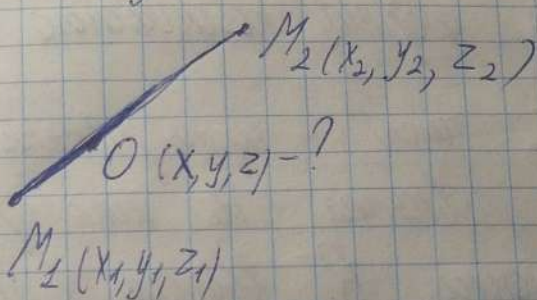 M₂ (x₂, y₂, z₂)
O (x, y, z) - ?
M₁ (x₁, y₁, z₁)